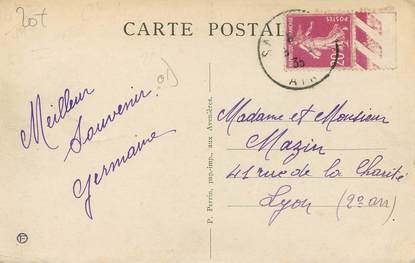 20t
CARTE POSTALE
POSTES
20c
35
AIN
Meilleur
Souvenir
Germaine
P. Perrin, pap.-imp., aux Avenières.
Madame et Monsieur
Mazin
41 rue de la Charité
Lyon (2e arr)
F